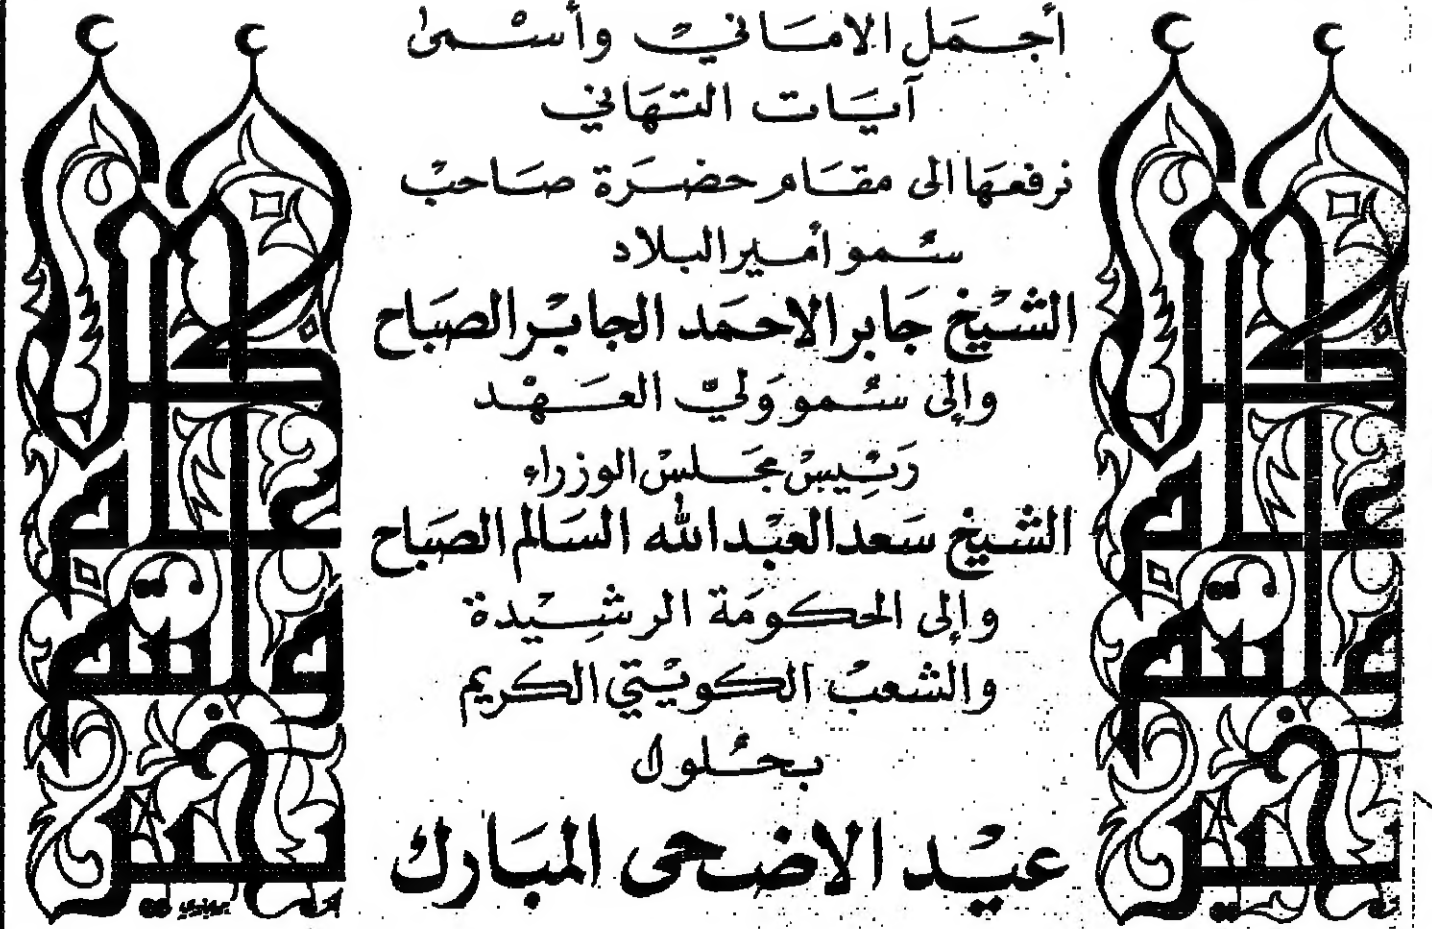 أجمل الاماني وأسمى
آيات التهاني
نرفعها الى مقام حضرة صاحب
سمو أمير البلاد
الشيخ جابر الاحمد الجابر الصباح
وإلى سمو ولي العهد
رئيس مجلس الوزراء
الشيخ سعد العبد الله السالم الصباح
وإلى الحكومة الرشيدة
والشعب الكويتي الكريم
بحلول
عيد الاضحى المبارك
كل عام
وانتم
بخير
كل عام
وانتم
بخير